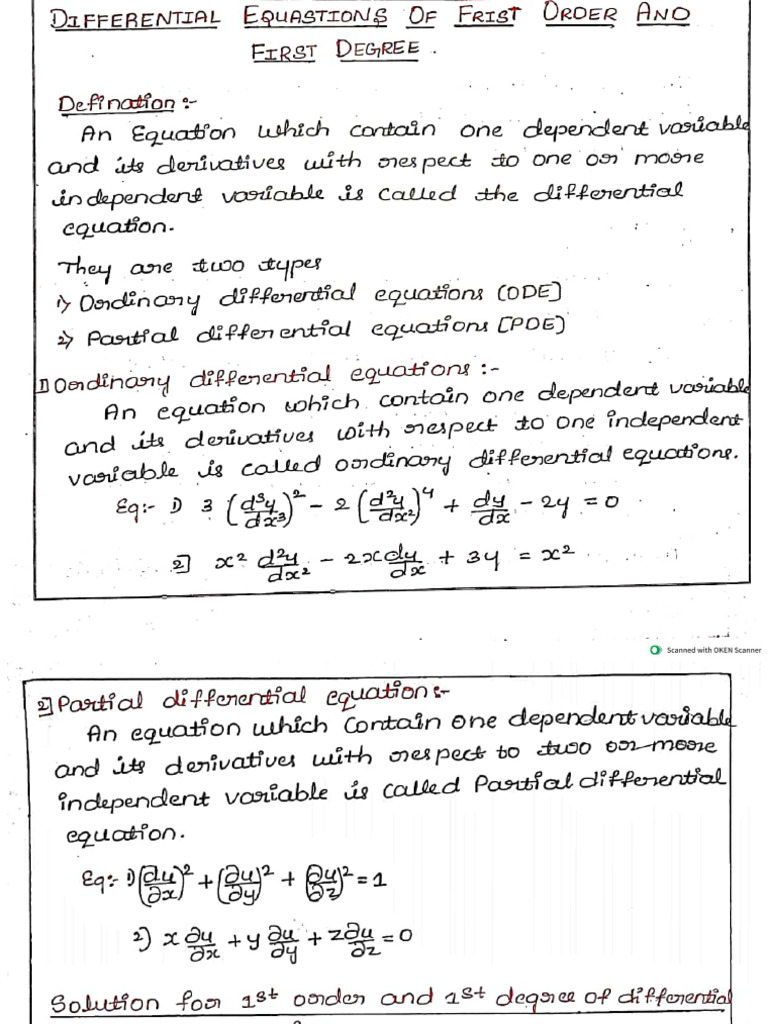 DIFFERENTIAL EQUASTIONS OF FRIST ORDER AND
FIRST DEGREE.
Defination:-
An Equation which contain one dependent variable
and its derivatives with respect to one or more
independent variable is called the differential
equation.
They are two types
1) Ordinary differential equations [ODE]
2) Partial differential equations [PDE]
1] Ordinary differential equations :-
An equation which contain one dependent variable
and its derivatives with respect to one independent
variable is called ordinary differential equations.
Eg:- 1) 3 (d³y/dx³)² - 2 (d²y/dx²)⁴ + dy/dx - 2y = 0
2] x² d²y/dx² - 2x dy/dx + 3y = x²
Scanned with OKEN Scanner
2] Partial differential equation:-
An equation which contain one dependent variable
and its derivatives with respect to two or more
independent variable is called Partial differential
equation.
Eg:- 1) (∂u/∂x)² + (∂u/∂y)² + (∂u/∂z)² = 1
2) x ∂u/∂x + y ∂u/∂y + z ∂u/∂z = 0
Solution for 1st order and 1st degree of differential